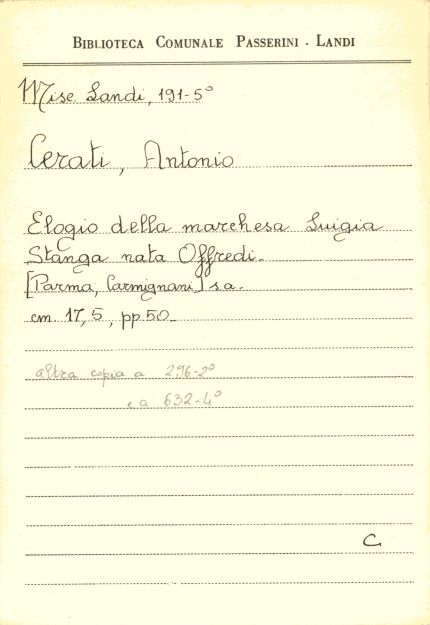 BIBLIOTECA COMUNALE PASSERINI - LANDI
Misc Landi, 191-5°
Cerati, Antonio
Elogio della marchesa Luigia
Stanga nata Offredi.
[Parma, Carmignani] s.a.
cm 17,5, pp 50.
altra copia a 296-2°
e a 632-4°
C